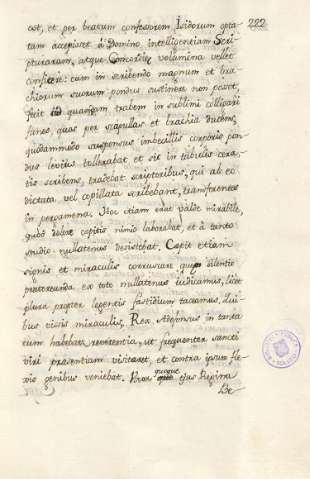 222
est, et per beatum confessorem Isidorum opta-
tam accepisset à Domino intelligentiam Scri-
pturarum, atque Concordiæ volumina vellet
conficere: cum in scribendo magnum et bra-
chiorum suorum pondus sustinere non posset,
fecit ad quamdam trabem in sublimi colligari
funes, quos per scapullas et brachia ducens,
quodammodo suspensus imbecillis corporis pon-
dus levius tollerabat et sic in tabulis cera-
tis scribens, tradebat scriptoribus, qui ab eo
dictata, vel copillata scribebant, transferentes
in pergamena. Hoc etiam erat valde mirabile,
quod dolore capitis nimio laborabat, et à tanto
studio nullatenus desistebat. Cepit etiam
signis et miraculis coruscare quæ silentio
prætereunda ex toto nullatenus judicamus, licet
plura propter legentis fastidium taceamus. Qui-
bus visis miraculis, Rex Adefonsus in tanta
eum habebat reverentia, ut frequenter sancti
viri præsentiam visitaret, et contra ipsum fle-
xis genibus veniebat. Porro quoque ejus Regina
Be-